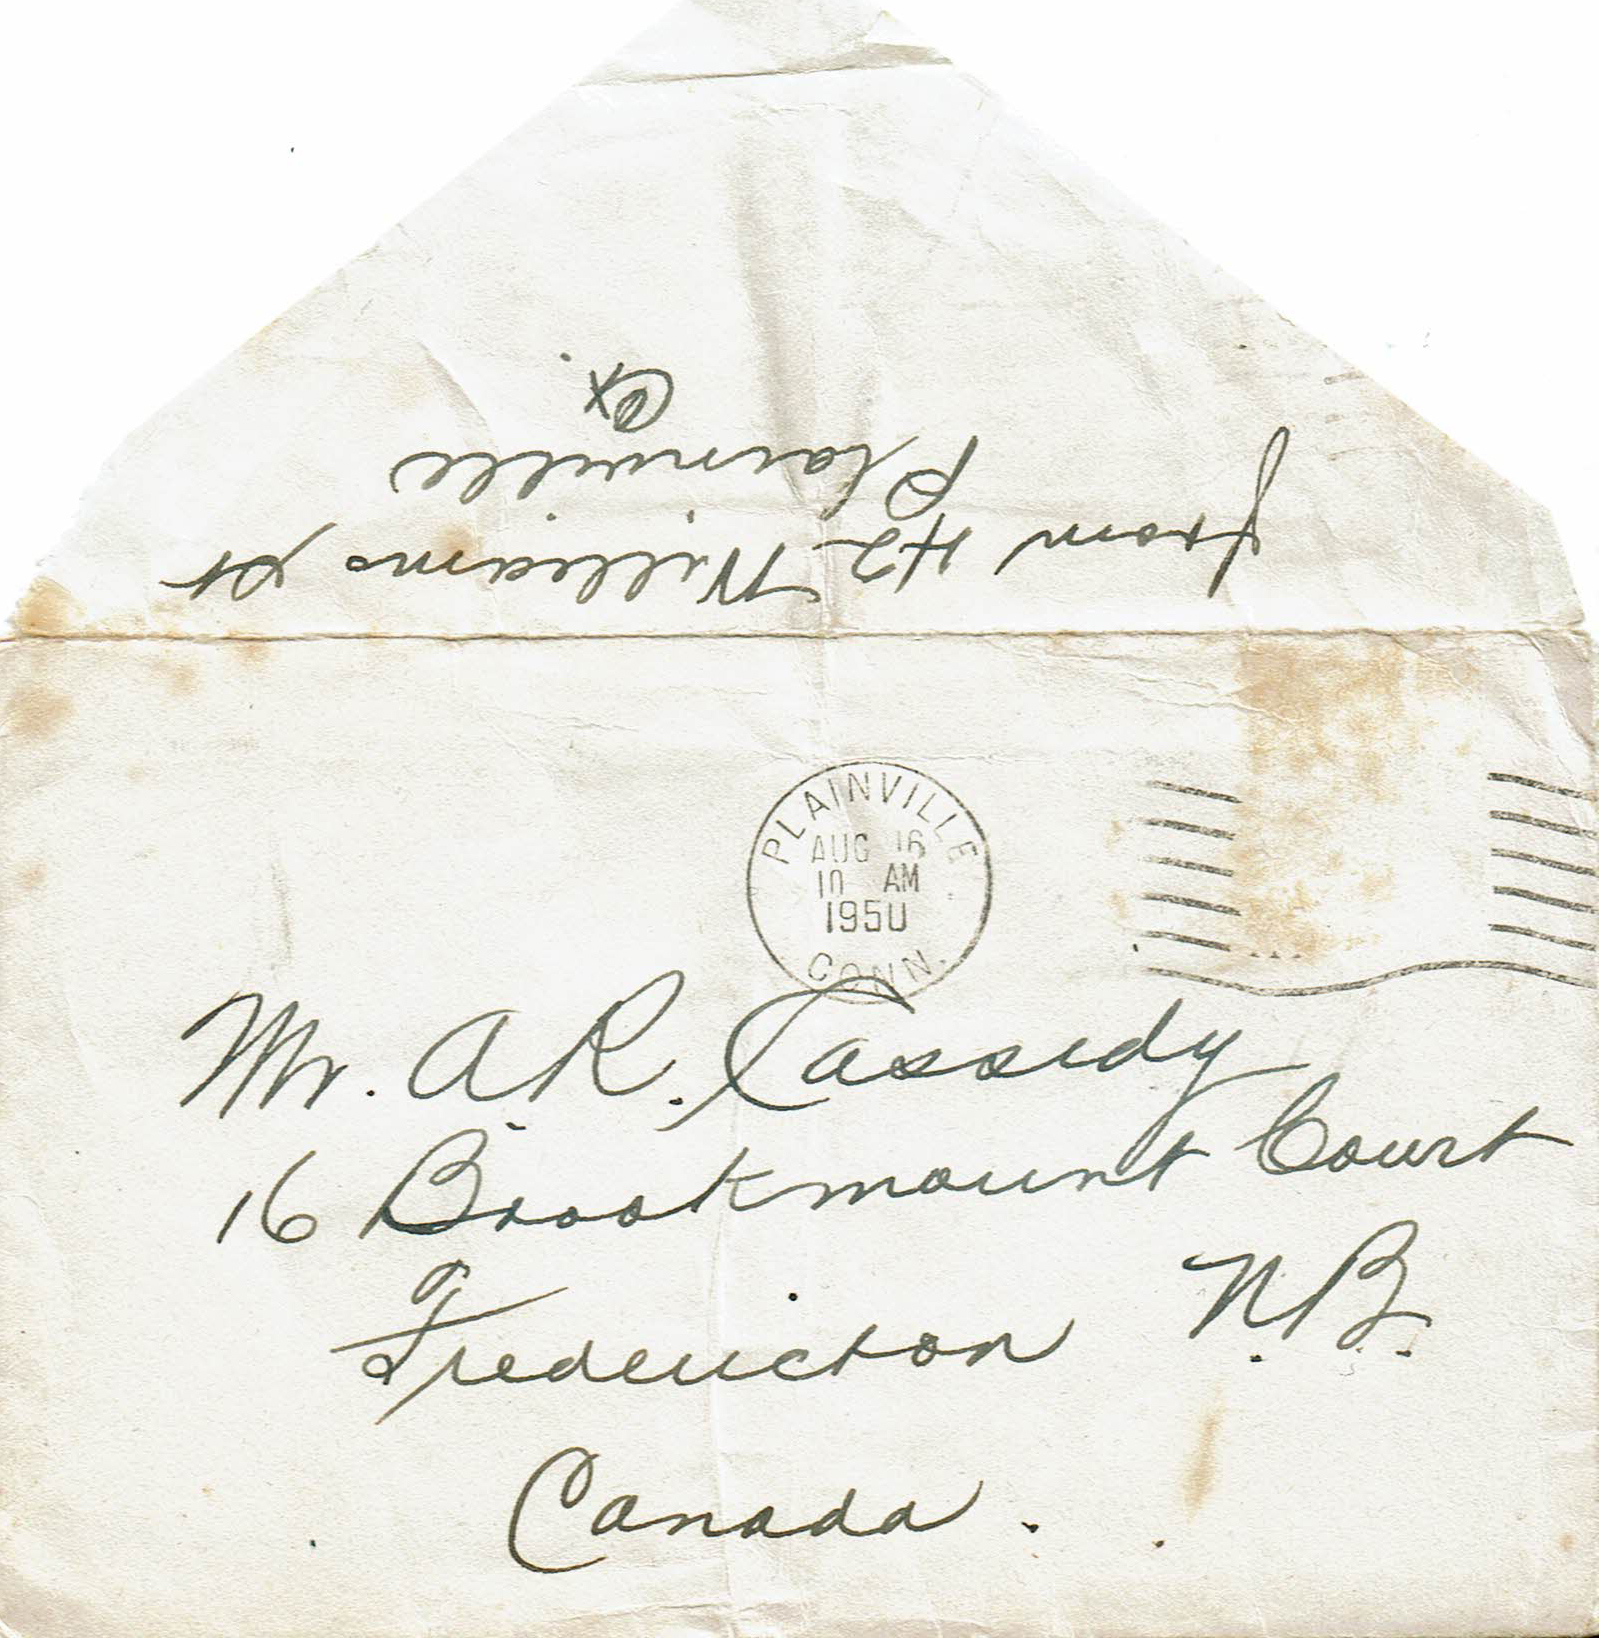 from 42 Williams St
Plainville
Ct.
PLAINVILLE
AUG 16
10 AM
1950
CONN.
Mr. A.R. Cassidy
16 Brookmount Court
Fredericton N.B.
Canada.